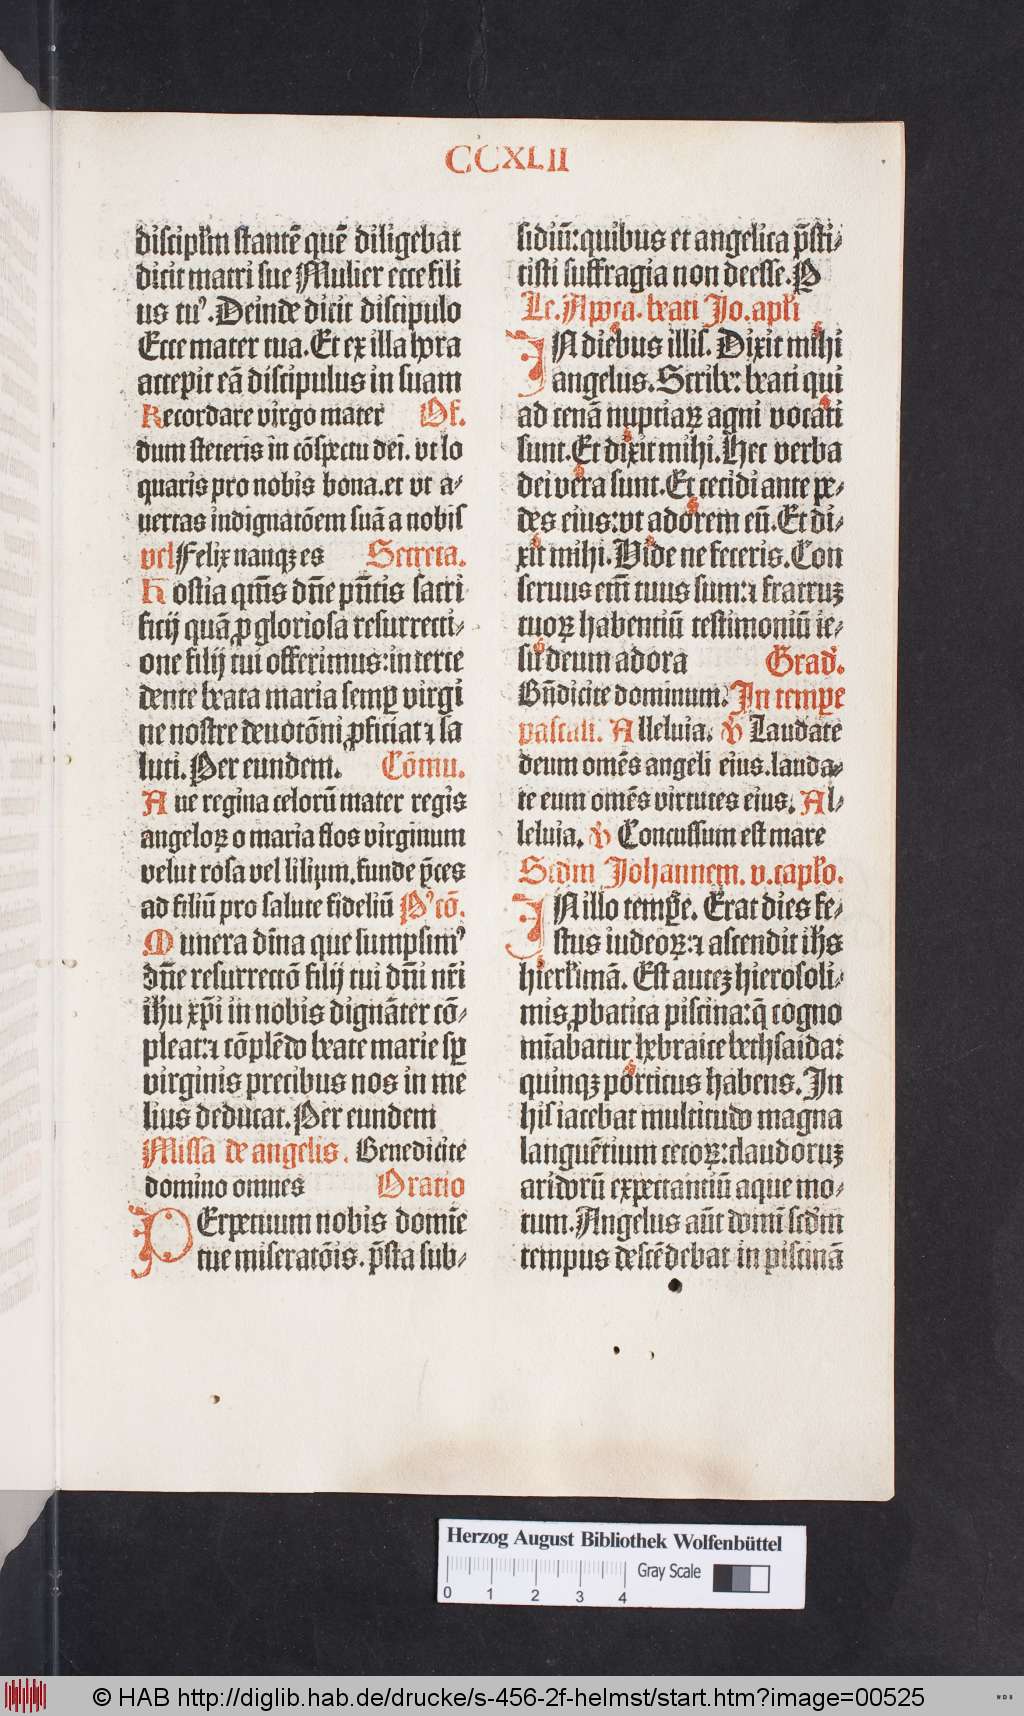 CCXLII
discipl'm stantē quē diligebat
dicit matri sue Mulier ecce fili
us tuꝰ. Deinde dicit discipulo
Ecce mater tua. Et ex illa hora
accepit eā discipulus in suam
Recordare virgo mater Of.
dum steteris in cōspectu dei. vt lo
quaris pro nobis bona. et vt a-
uertas indignatōem suā a nobis
vel Felix nanqꝫ es Secreta.
Hostia qm̄s dn̄e pn̄tis sacri
ficij quā ꝓ gloriosa resurrecti-
one filij tui offerimus: interce
dente beata maria semꝑ virgi
ne nostre deuotōni ꝓficiat ⁊ sa
luti. Per eundem. Cōmu.
Aue regina celorū mater regis
angeloꝝ o maria flos virginum
velut rosa vel lilium. funde p̄ces
ad filiū pro salute fideliū Pꝰcō.
Munera diīna que sumpsimꝰ
dn̄e resurrectō filij tui dn̄i nr̄i
ihu xp̄i in nobis dignāter cō-
pleat: ⁊ cōplēdo beate marie sꝑ
virginis precibus nos in me
lius deducat. Per eundem
Missa de angelis. Benedicite
domino omnes Oratio
PErpetuum nobis domīe
tue miseratōis. p̄sta sub-
sidiū: quibus et angelica p̄sti-
tisti suffragia non deesse. P
Lc. Apoca. beati Jo. apl'i
IN diebus illis. Dixit mihi
angelus. Scribe: beati qui
ad cenā nuptiaꝝ agni vocati
sunt. Et dixit mihi. Hec verba
dei vera sunt. Et cecidi ante pe-
des eius: vt adorem eū. Et di-
xit mihi. Vide ne feceris. Con
seruus em̄ tuus sum: ⁊ fratruꝫ
tuoꝝ habentiū testimoniū ie-
su deum adora Grad.
Bn̄dicite dominum. In tempe
pascali. Alleluia. ℣ Laudate
deum omēs angeli eius. lauda-
te eum omēs virtutes eius. Al-
leluia. ℣ Concussum est mare
Scdm Johannem. v. caplo.
IN illo tempe. Erat dies fe-
stus iudeoꝝ: ⁊ ascendit ihs
hierl'imā. Est auteꝫ hierosoli-
mis ꝓbatica piscina: q̄ cogno
mīabatur hebraice bethsaida:
quinqꝫ porticus habens. In
his iacebat multitudo magna
languētium cecoꝝ: claudoruꝫ
aridorū expectantiū aque mo-
tum. Angelus aūt domī scdm
tempus descēdebat in piscinā
Herzog August Bibliothek Wolfenbüttel
Gray Scale
0 1 2 3 4
© HAB http://diglib.hab.de/drucke/s-456-2f-helmst/start.htm?image=00525